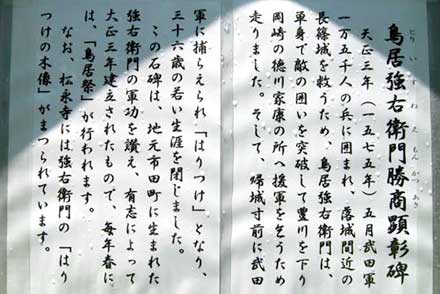 鳥居強右衛門勝商顕彰碑
とりいすねえもんかつあき
天正三年（一五七五年）五月武田軍
一万五千人の兵に囲まれ、落城間近の
長篠城を救うため、鳥居強右衛門は、
単身で敵の囲いを突破して豊川を下り
岡崎の徳川家康の所へ援軍を乞うため
走りました。そして、帰城寸前に武田
軍に捕らえられ「はりつけ」となり、
三十六歳の若い生涯を閉じました。
この石碑は、地元市田町に生まれた
強右衛門の軍功を讃え、有志によって
大正三年建立されたもので、毎年春に
は、「鳥居祭」が行われます。
なお、松永寺には強右衛門の「はり
つけの木像」がまつられています。